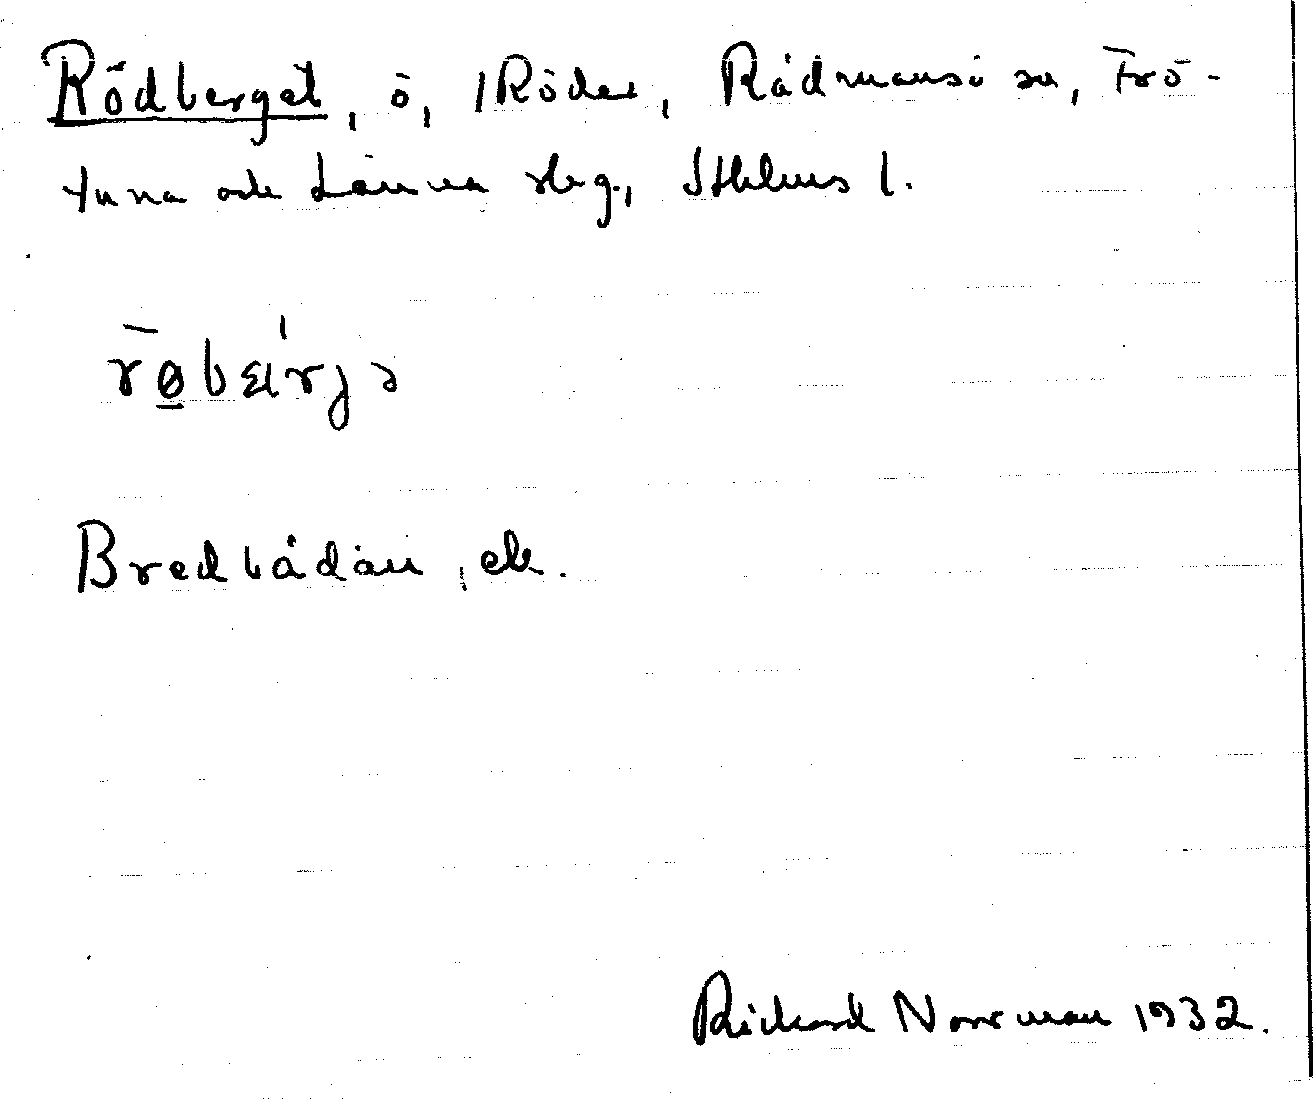 Rödberget, ö, Röder, Rådmansö sn, Frö-
tuna och Länna slg., Sthlms l.
Bredbådan, ek.
Rickard Norrman 1932.